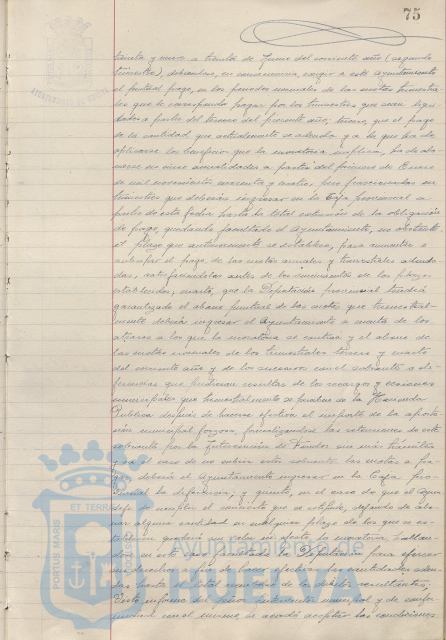 75
AYUNTAMIENTO DE HUELVA
treinta y nueve a treinta de Junio del corriente año (segundo
trimestre), debiendose, en consecuencia, exigir a este Ayuntamiento
el puntual pago, en los periodos normales de las cuotas trimestra-
les que le corresponda pagar por los trimestres que sean liqui-
dados a partir del tercero del presente año; tercero, que el pago
de la cantidad que actualmente se adeuda y a la que ha de
aplicarse los beneficios que la moratoria implica, ha de ha-
cerse en anualidades a partir del primero de Enero
de mil novecientos cuarenta y cuatro, fraccionadas en
trimestres que deberán ingresar en la Caja provincial a
partir de esta fecha hasta la total extinción de la obligación
de pago, quedando facultado el Ayuntamiento, no obstante
el plazo que anteriormente se establece, para aumentar o
anticipar el pago de las cuotas anuales y trimestrales adeuda-
das, satisfaciéndolas antes de los vencimientos de los plazos
establecidos; cuarto, que la Diputación provincial tendrá
garantizado el abono puntual de las cuotas que trimestral-
mente deberá ingresar el Ayuntamiento a cuenta de los
atrasos a los que la moratoria se contrae y el abono de
las cuotas normales de los trimestres tercero y cuarto
del corriente año y de los sucesivos con el sobrante o di-
ferencias que pudieran resultar de los recargos y
municipales que trimestralmente se perciban de la Hacienda
Pública después de hacerse efectivo el importe de la aporta-
ción municipal forzosa, formalizándose las retenciones de este
sobrante por la Intervención de Fondos sin más trámites
y en el caso de no existir este sobrante las cuotas a fi-
jar deberá el Ayuntamiento ingresar en la Caja pro-
vincial la diferencia; y quinto, en el caso de que el Ayun-
deje de cumplir el convenio que se estipula, dejando de abo-
nar alguna cantidad en cualquier plazo de los que se es-
tablecen quedará sin valor ni efecto la moratoria
en este caso la Diputación para ejercer
sus derechos a fin de hacer efectivas las cantidades adeu-
dadas hasta el total de los débitos resultantes.
Visto informe del señor Interventor municipal y de confor-
midad con el mismo se acordó aceptar las condiciones
PORTUS MARIS ET TERRAE CUSTODIA
Ayuntamiento de
HUELVA